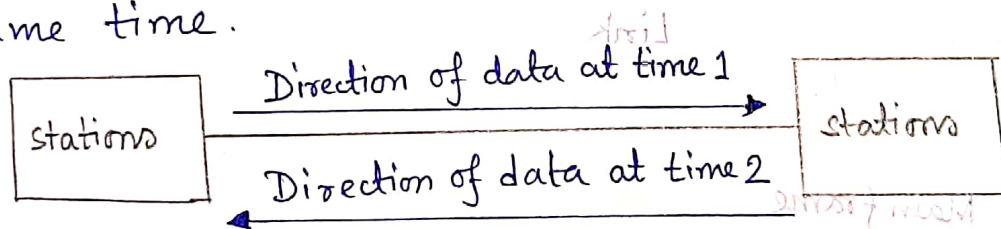 me time.
Direction of data at time 1
stations
stations
Direction of data at time 2